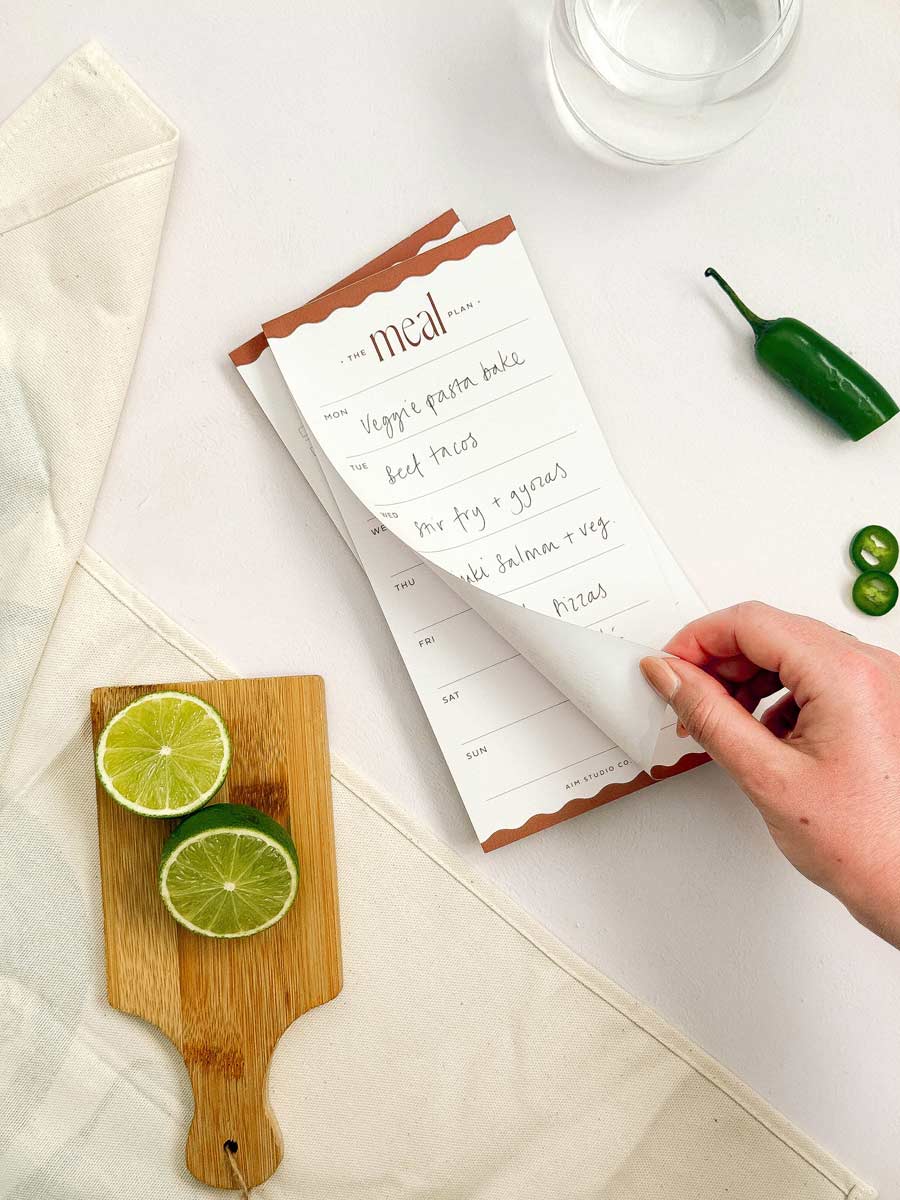 · THE meal PLAN ·
MON Veggie pasta bake
TUE Beef tacos
WED Stir fry + gyozas
Salmon + veg.
Pizzas
WE
THU
FRI
SAT
SUN
AIM STUDIO CO.